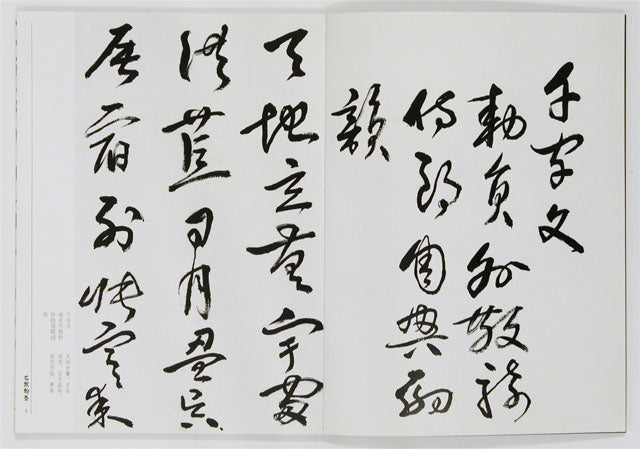 千字文
勅員外散騎
侍郎周興嗣
韻
天地玄黃宇宙
洪荒日月盈昃
辰宿列張寒來